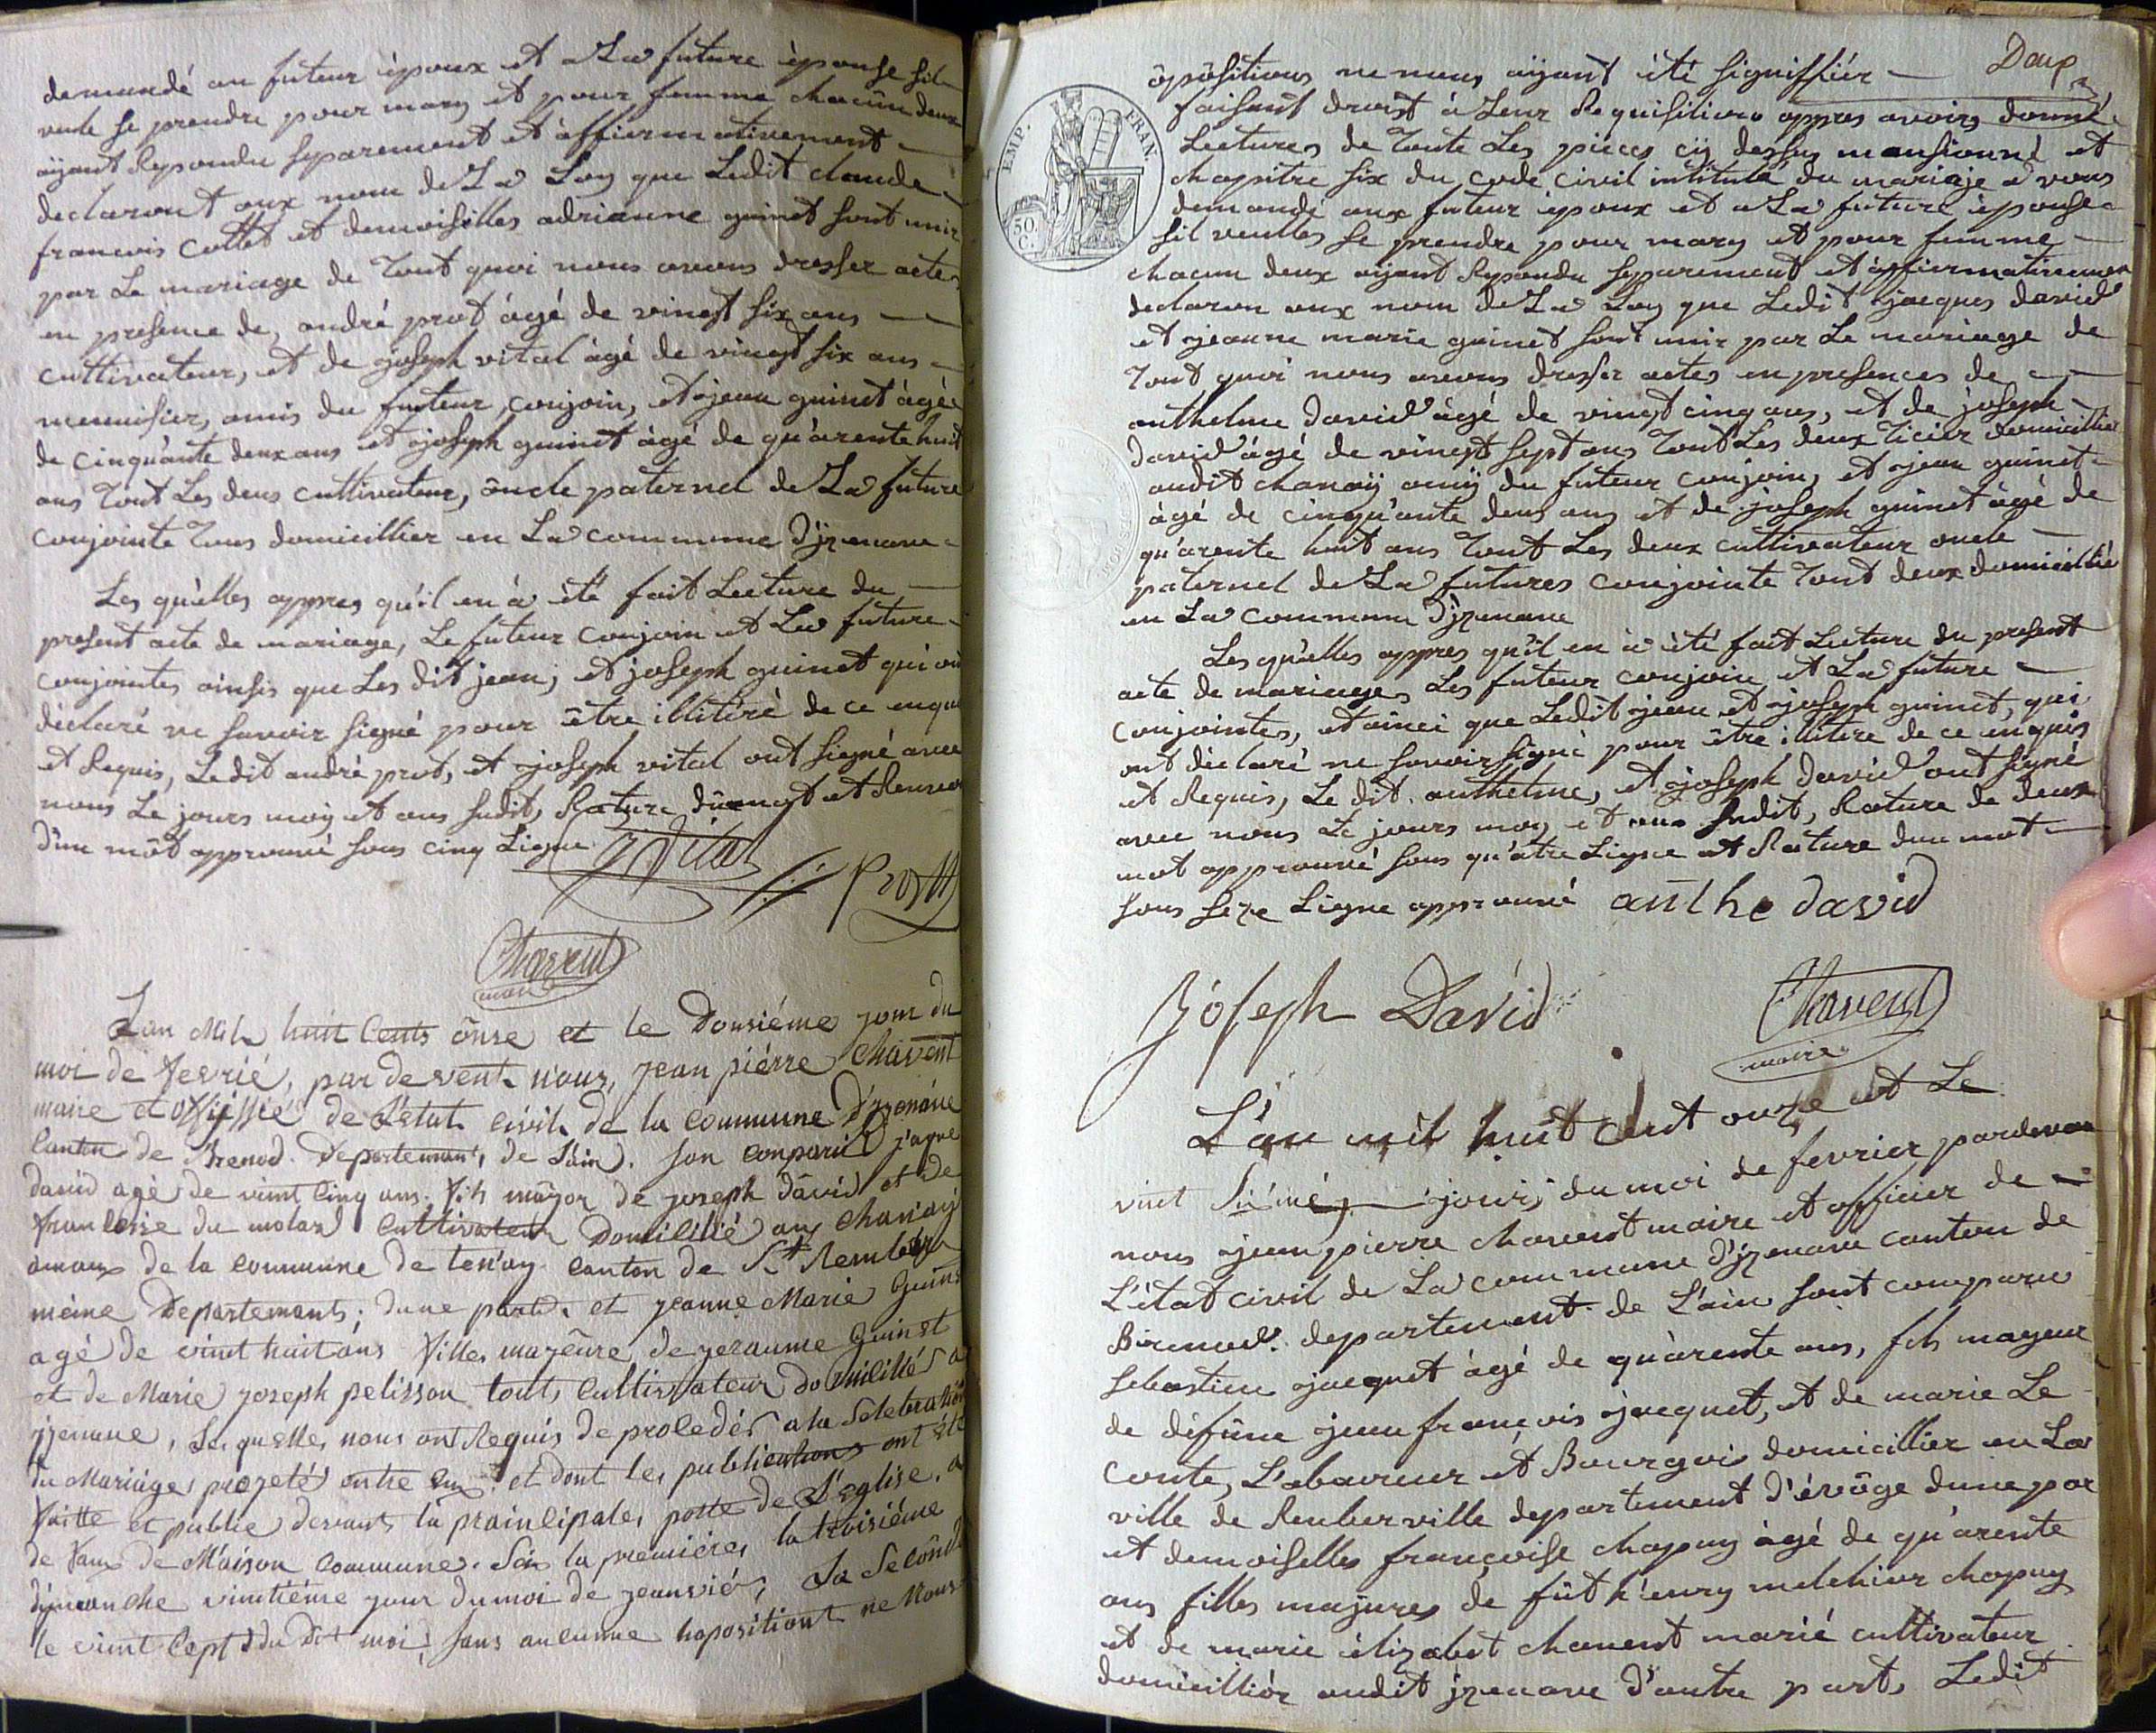 demandé au futeur époux et a La future épouse sil
veule se prendre pour mary et pour femme chacûn deux
aÿant Repondu separement et affiermativement
declaront aux nom de La Loy que Ledit claude
francois collet et demoiselles adrianne guinet sont unir
par Le mariage de Tout quoi nous avons dresser acte
en presence de, andré prot âgé de vingt six ans
cultivateur, et de joseph vital âgé de vingt six ans
menuisier, amis du futeur conjoin, et jean guinet âgé
de cinquante deux ans et joseph guinet âgé de qu'arente huit
ans Tout Les deus cultivateur, ôncle paternel de La future
conjointe Tous domicillier en La commune D'jzenave
Les qu'elles appres qu'il en à été fait Lecture du
present acte de mariage, Le futeur conjoin et La future
conjointes ainsis que Les dit jean, et joseph guinet qui on
déclaré ne savoir signé pour être illitéré de ce enqui
et Requis, Ledit andré prot, et joseph vital ont signé avec
nous Le jours moy et ans sudit, Rature dûn mot et Renvoi
d'un môt approuvé sous cinq Ligne J Vital
Prost
Chavent
maire
L'an Mil huit Cents ônse et le Dousiéme jour du
moi de fevrié, par devent nous, jean piérre Chavent
maire et offissié de L'etat civil de la commune d'jzenave
Canton de Brenod. Departement de L'ain. son comparu j'aque
david agé de vint Cinq ans. fils mâjor de joseph dâvid et de
françoise du molard Cultivateur Domicilié au Chanay
amaux de la commune de ten'ay canton de St Rembert
méme Departement; d'une part. et jeanne Marie Guinet
agé de vint huit ans filles majeûre, de jeraume Guinet
et de Marie joseph pelisson tout, Cultivateur domicilié a
jzenave, Les quelles nous ont Requis de procedér a la Selebration
du Mariage projeté entre Eux. et dont les publications ont été
faitte et publie devant la prainsipale, porte de L'eglise, a
de faux de Maison Commune. Sai la premiére, la troisiéme
dimanche vintiéme jour du moi de jeanvié, La Secônde
le vint Sept du dit moi, sans aucunne hopositiont ne Nous
Doup
ôpôsitions ne nous aÿant été signiffiér
faisant droit à Leur Requisitions appres avoirs donné
Lectures de Toute Les pièces cÿ dessus mansionné et
chapitre six du code civil intitulé du mariaje a vons
demandé aux futeur époux et a La future épouse
sil veulles se prendre pour mary et pour femme
chacun deux aÿant Repondu separement et àffiermativemen
declaron aux nom de La Loy que Ledit jacques david
et jeanne marie guinet sont unir par Le mariage de
Tout quoi nous avons dresser actes en presences de
anthelme david âgé de vingt cinq ans, et de joseph
david âgé de vingt sept ans Tout Les deux Ticier domicillier
audit chanaÿ amÿ du futeur conjoin, et jean guinet
âgé de cinqu'ante deus ans et de joseph guinet âgé de
qu'arente huit ans Tout Les deux cultivateur oncle
paternel de La futures conjointe Tout deux domicillié
en La commune D'jzenave
Les qu'elles appres qu'il en à été fait Lecture du present
acte de mariages Les futeur conjoin et La future
conjointes, et ainci que Ledit jean et joseph guinet, qui
ont déclaré ne savoir signé pour être illitere de ce enquis
et Requis, Le dit anthelme, et joseph david ont signé
avec nous Le jours moy et ans sudit, Rature de deux
mot approuvé sous qu'atre Ligne et Rature dun mot
sous seze Ligne approuvé anthe david
Joseph David
Chavent
maire
L'an mil huit cent onze et Le
vint Siéme jours du moi de fevrier pardevan
nous jean pierre chavent maire et officier de
L'état civil de La commune D'jzenave canton de
Birenod. departement de L'ain sont comparu
sebastien jacquet âgé de quàrente ans, fils mayeur
de défûnc jean francois jacquet, et de marie Le
conte, L'aboureur et Bourgois domicillier en La
ville de Renberville departement d'évôge dune par
et demoiselles françoise chapuy âgé de qu'arente
ans filles majures de fût h'enry melchior chapuy
et de marie élizabet chanent marié cultivateur
domicilliér audit jzenave d'autre part, Ledit
EMP. FRAN.
50.
C.